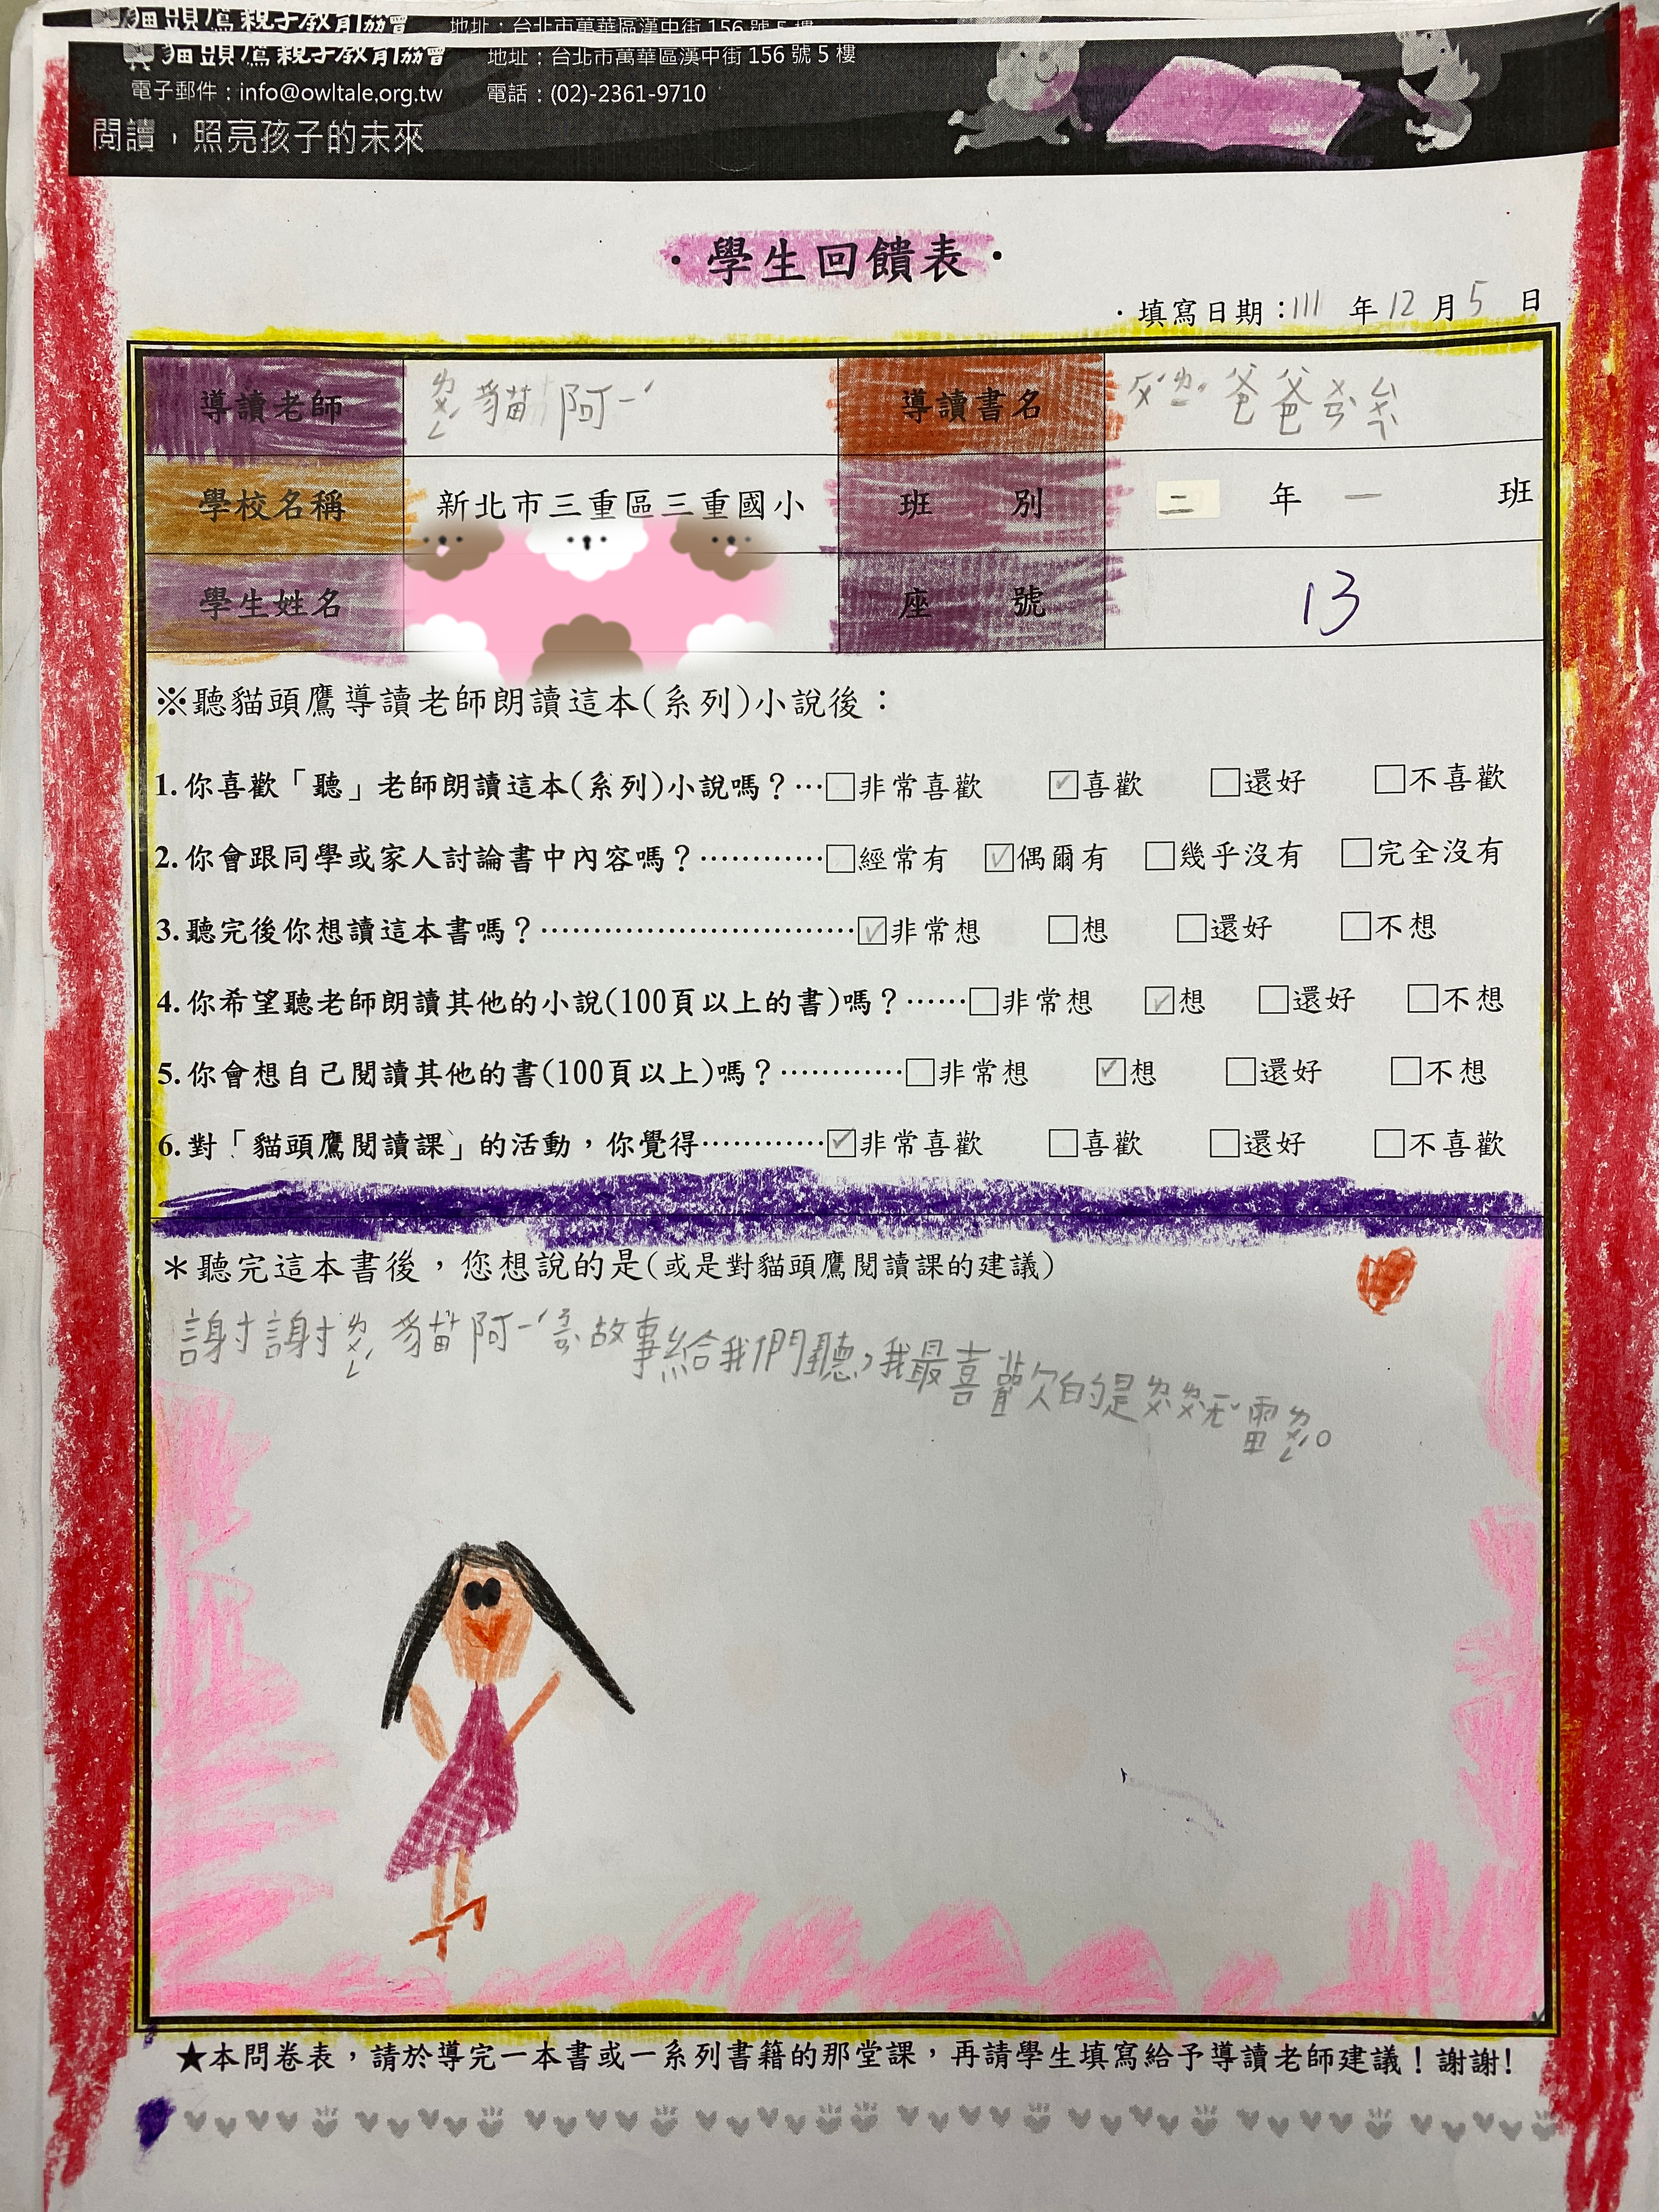 貓頭鷹親子教育協會 地址：台北市萬華區漢中街 156 號 5 樓
貓頭鷹親子教育協會 地址：台北市萬華區漢中街 156 號 5 樓
電子郵件：info@owltale.org.tw 電話：(02)-2361-9710
閱讀，照亮孩子的未來
·學生回饋表·
·填寫日期：111 年 12 月 5 日
導讀老師 ㄌㄨㄛˊ 貓 阿ㄧˊ 導讀書名 爸爸
學校名稱 新北市三重區三重國小 班 別 二 年 一 班
學生姓名 座 號 13
※聽貓頭鷹導讀老師朗讀這本(系列)小說後：
1.你喜歡「聽」老師朗讀這本(系列)小說嗎？…□非常喜歡 ☑喜歡 □還好 □不喜歡
2.你會跟同學或家人討論書中內容嗎？…………□經常有 ☑偶爾有 □幾乎沒有 □完全沒有
3.聽完後你想讀這本書嗎？…………………………☑非常想 □想 □還好 □不想
4.你希望聽老師朗讀其他的小說(100頁以上的書)嗎？……□非常想 ☑想 □還好 □不想
5.你會想自己閱讀其他的書(100頁以上)嗎？…………□非常想 ☑想 □還好 □不想
6.對「貓頭鷹閱讀課」的活動，你覺得…………☑非常喜歡 □喜歡 □還好 □不喜歡
＊聽完這本書後，您想說的是(或是對貓頭鷹閱讀課的建議)
謝謝 貓阿ㄧˊ 故事給我們聽，我最喜歡的是 雷 。
★本問卷表，請於導完一本書或一系列書籍的那堂課，再請學生填寫給予導讀老師建議！謝謝!